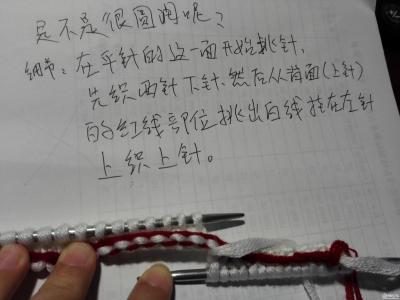 是不是很圆润呢？
细节：在平针的这一面开始挑针，
先织两针下针，然后从背面（上针）
的红线部位挑出白线挂在左针
上织上针。